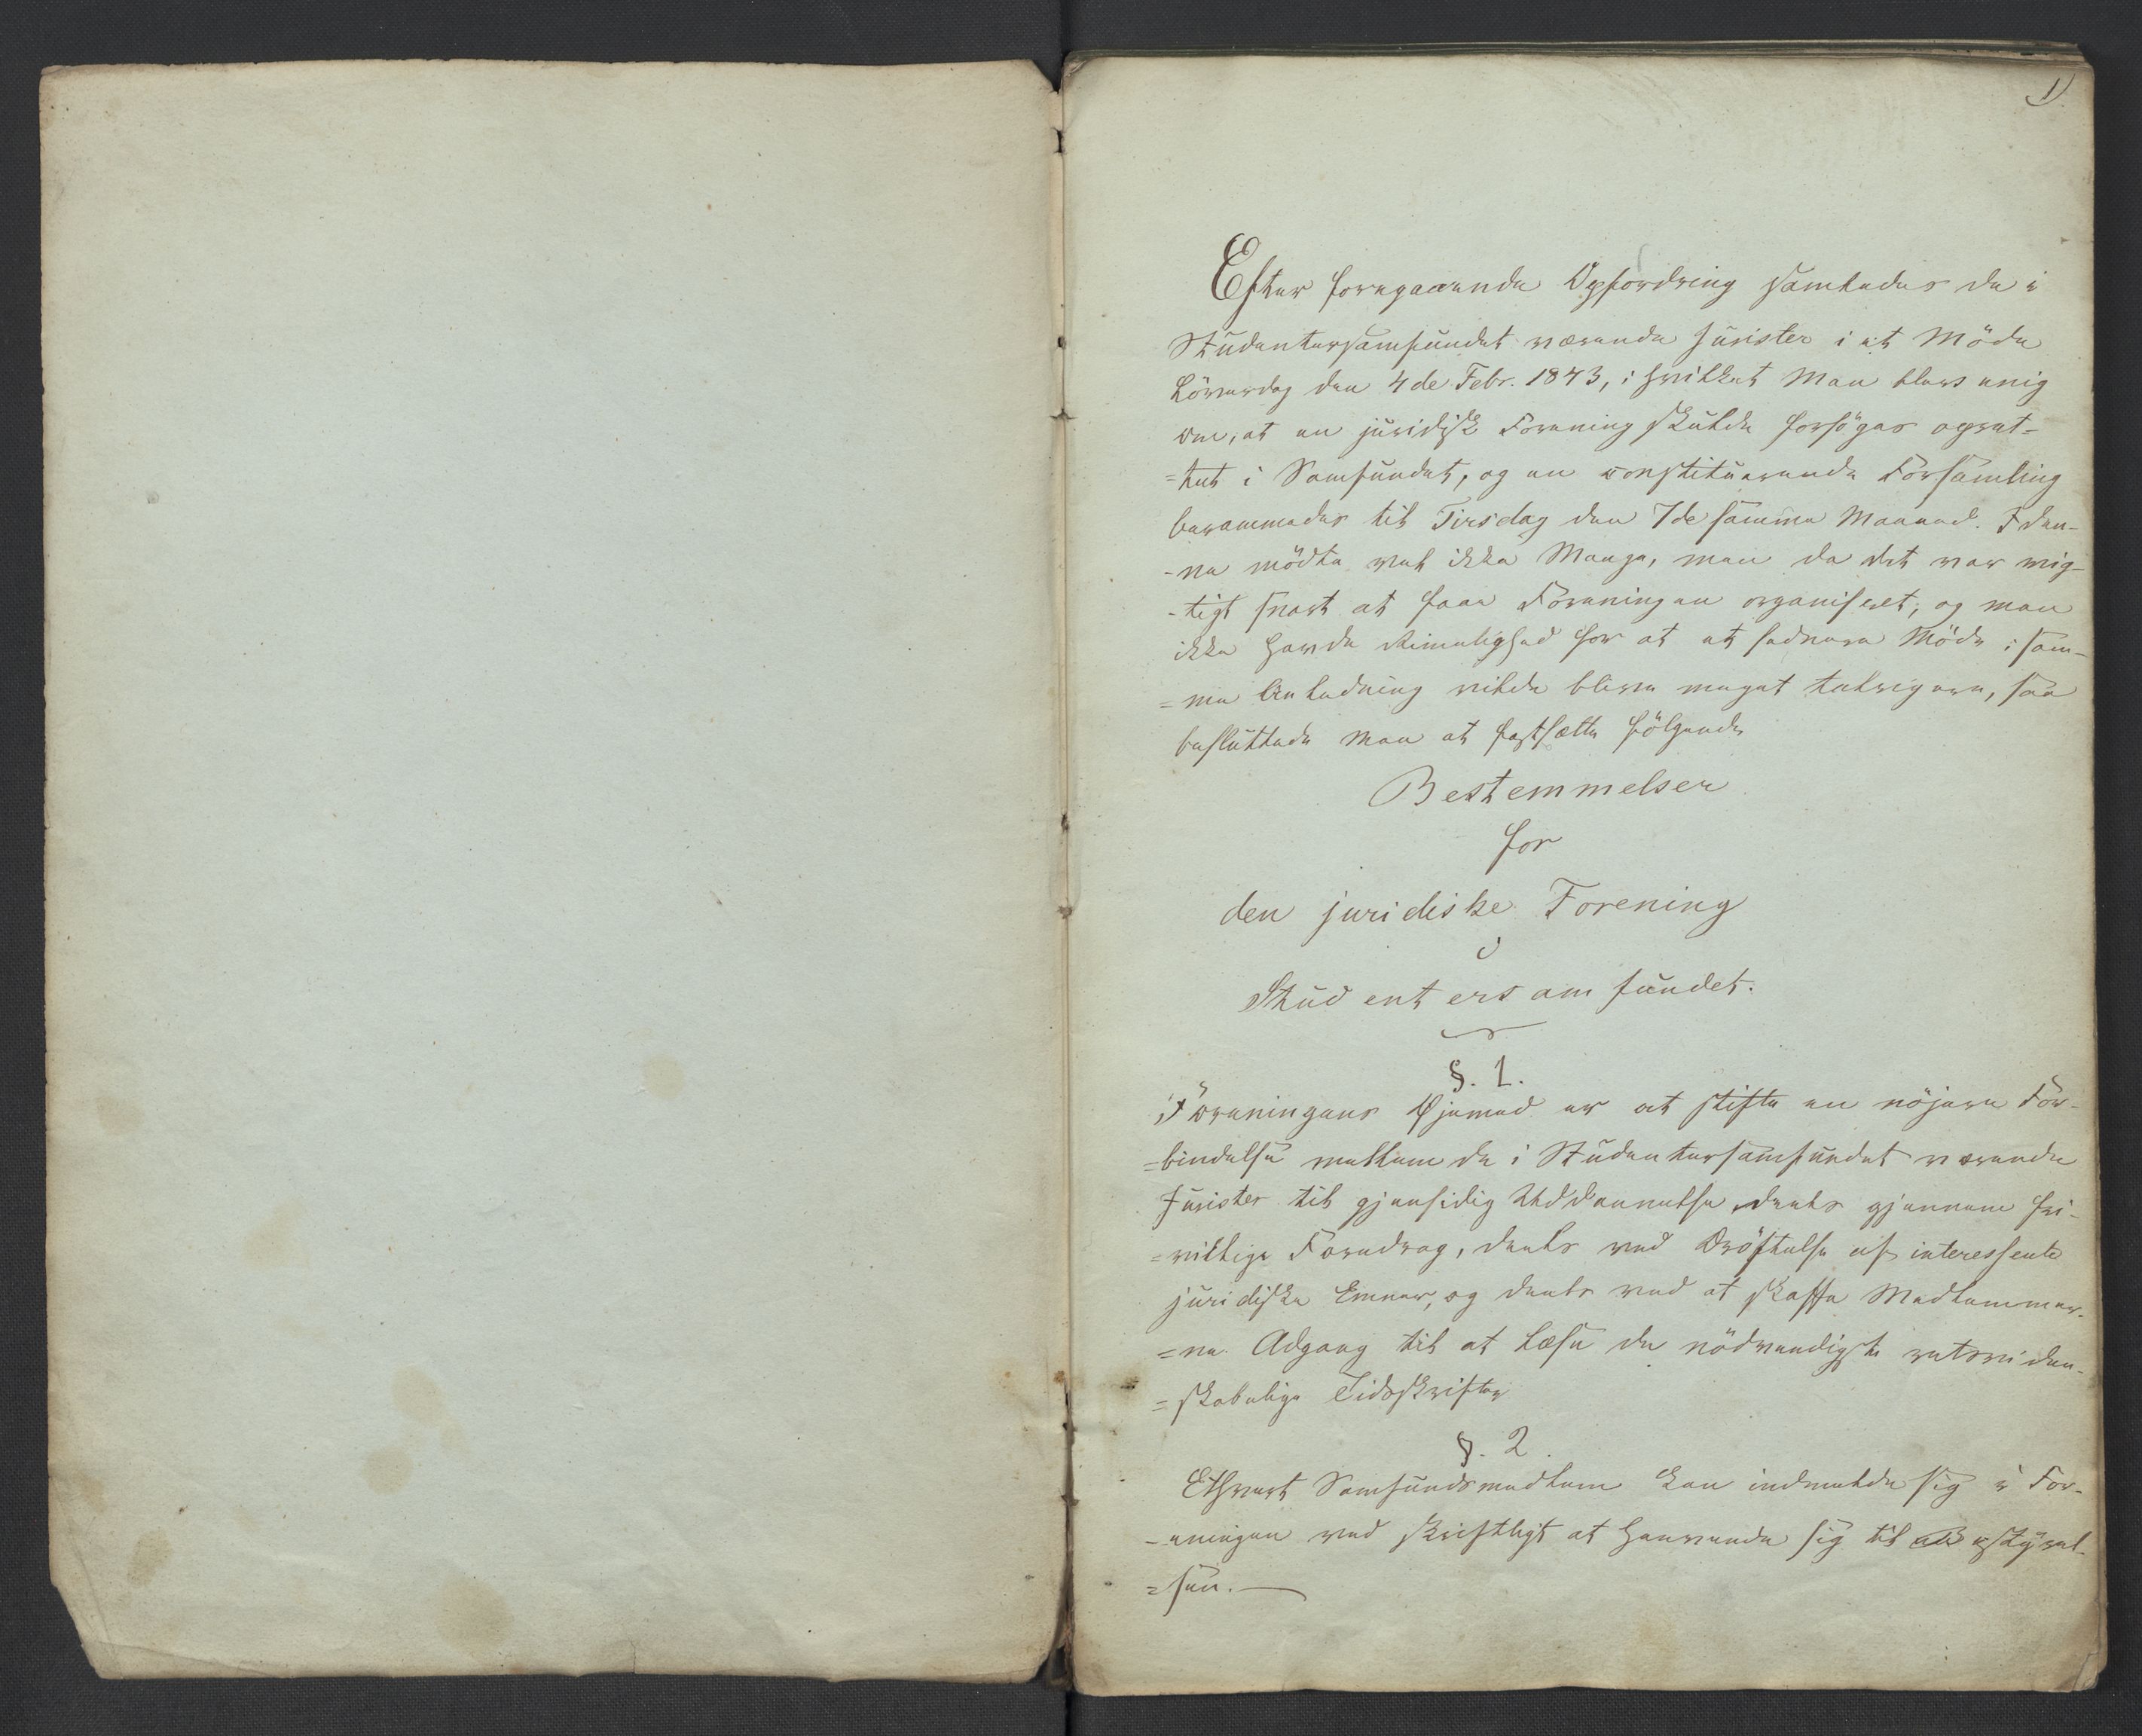 1)
Efter foregaaende Opfordring samledes de i
Studentersamfundet værende Jurister i et Möde
Löverdag den 4de Febr. 1843, i hvilket Man blev enig
om, at en juridisk Forening skulde forsöges opret-
=tet i Samfundet, og en constituerende Forsamling
berammedes til Tirsdag den 7de samme Maaned. I den-
-ne mödte vel ikke Mange, men da det var vig-
-tigt snart at faae Foreningen organiseret, og man
ikke havde Rimelighed for at et sednere Möde i sam-
=me Anledning vilde blive meget talrigere, saa
besluttede Man at fastsætte fölgende
Bestemmelser
for
den juridiske Forening
i
Studentersamfundet.
§. 1.
Foreningens Øjemed er at stifte en nöjere For-
=bindelse mellem de i Studentersamfundet værende
Jurister til gjensidig Uddannelse, deels gjennem fri-
=villige Foredrag, deels ved Dröftelse af interessente
juridiske Emner, og deels ved at skaffe Medlemmer-
=ne Adgang til at læse de nödvendigste retsviden-
=skabelige Tidsskrifter
§. 2.
Ethvert Samfundsmedlem kan indmelde sig i For-
-eningen ved skriftligt at henvende sig til Bestyrel-
=sen.